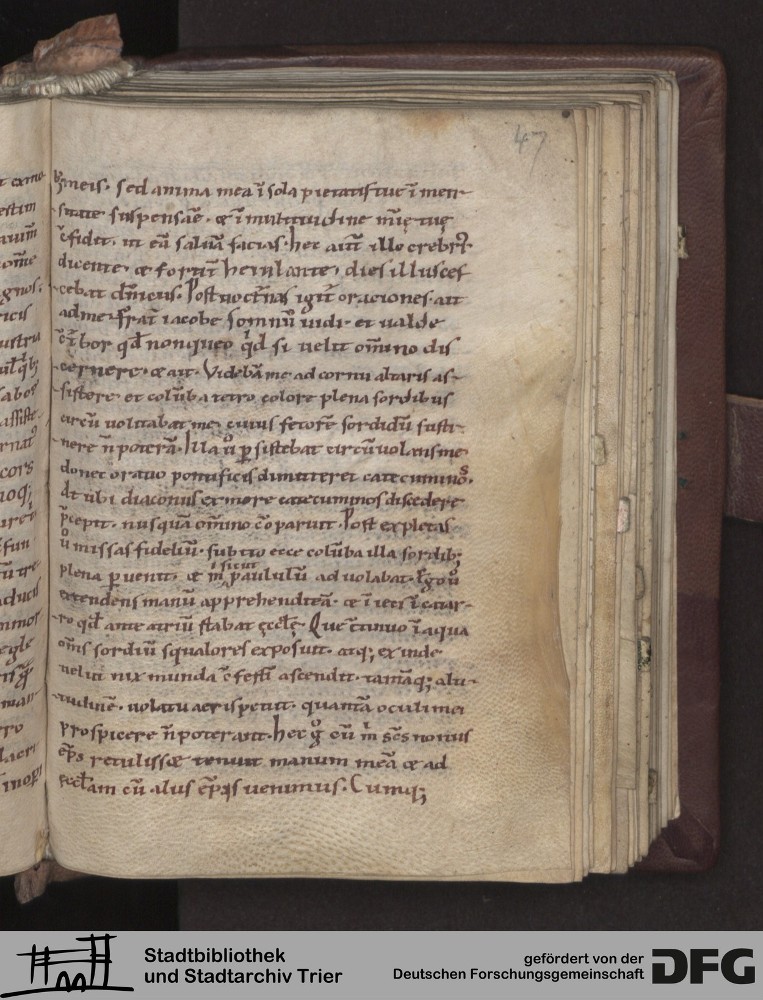 47
bꝫ meis. sed anima mea ī sola pietatis tue ī men
sitate suspensa ē. & ī multitudine mīe tuę
cōfidit. ut eā saluā facias. hec autē illo crebriꝰ
dicente. & fortit̄ heiulante. dies illusces
cebat dn̄icus. Post noct̄nas igit̄ orationes. ait
ad me. Frat̄ iacobe somnū uidi. et ualde
t̄bor qđ non queo qđ si uelit om̄ino dis
cernere. & ait. Videbā me ad cornu altaris as
sistere. et colūba tetro colore plena sordibus
circū uolitabat me. cuius fetorē sordidū susti
nere n̄ poterā. Illa ū p̄sistebat circūuolans me
donec oratio pontificis dimitteret catecuminos.
At ubi diaconus ex more catecuminos discedere
p̄cepit. nusquā om̄ino cōparuit. Post expletas
ū missas fideliū. subito ecce colūba illa sordibꝫ
plena puenit. & m̄ sicut paululū ad uolabat. Ergo ū
extendens manū apprehendi eā. & ī ieci ī catar
ro qđ ante atriū stabat ęcclę. Que cōtinuo ī aqua
om̄s sordiū squalores exposuit. atqꝫ exinde
ueluti nix munda cōfestī ascendit. tamāqꝫ alti
tudinē. uolatu aeris petiit. quantā oculi mei
prospicere n̄ poterant. hec g̊ cū m̄ sc̄s nonus
ep̄s retulisset tenuit manum meā & ad
ęccl̄am cū aliis ep̄is uenimus. Cumqꝫ
Stadtbibliothek
und Stadtarchiv Trier
gefördert von der
Deutschen Forschungsgemeinschaft
DFG